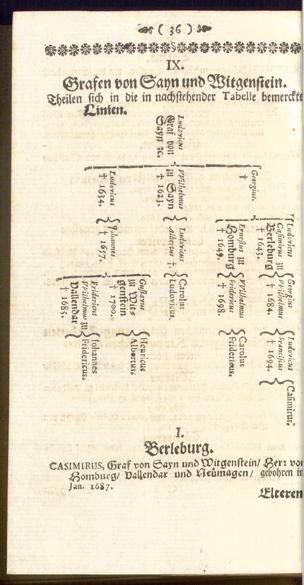 ( 36 )
IX.
Grafen von Sayn und Witgenstein.
Theilen sich in die in nachstehender Tabelle bemerckte
Linien.
Ludovicus
Graf von
Sayn ꝛc.
Georgius.
VVilhelmus
zu Sayn
† 1623.
Ludovicus
† 1634.
Ludovicus
Casimirus zu
Berleburg
† 1643.
Ernestus zu
Homburg
† 1649.
Ludovicus
Albertus
Johannes
† 1657.
Georgius
VVilhelmus
† 1684.
VVilhelmus
Fridericus
† 1698.
Carolus
Ludovicus.
Gustavus
zu Wit-
genstein
† 1700.
Fridericus
VVilhelmus zu
Vallendar
† 1685.
Ludovicus
Franciscus
† 1694.
Carolus
Fridericus.
Henricus
Albertus.
Johannes
Fridericus.
Casimirus.
I.
Berleburg.
CASIMIRUS, Graf von Sayn und Witgenstein/ Herr von
Homburg/ Vallendar und Neumagen/ gebohren
Jan. 1687.
Elteren